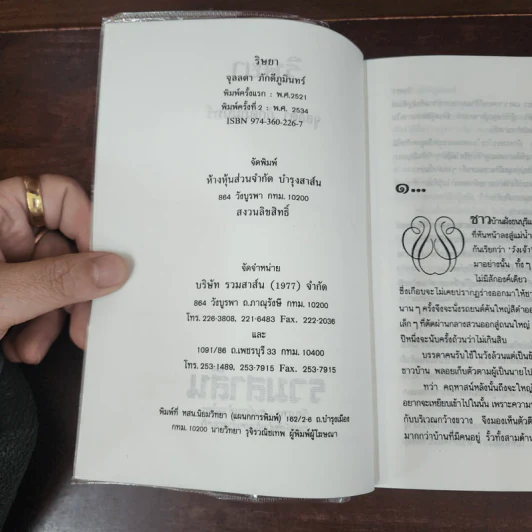 ริษยา
จุลลดา ภักดีภูมินทร์
พิมพ์ครั้งแรก : พ.ศ.2521
พิมพ์ครั้งที่ 2 : พ.ศ. 2534
ISBN 974-360-226-7
จัดพิมพ์
ห้างหุ้นส่วนจำกัด บำรุงสาส์น
864 วังบูรพา กทม. 10200
สงวนลิขสิทธิ์
จัดจำหน่าย
บริษัท รวมสาส์น (1977) จำกัด
864 วังบูรพา ถ.ภาณุรังษี กทม. 10200
โทร. 226-3808, 221-6483 Fax. 222-2036
และ
1091/86 ถ.เพชรบุรี 33 กทม. 10400
โทร. 253-1489, 253-7915 Fax. 253-7915
พิมพ์ที่ หสน.นิยมวิทยา (แผนกการพิมพ์) 162/2-6 ถ.บำรุงเมือง
กทม. 10200 นายวิทยา รุจิรวณิชเทพ ผู้พิมพ์ผู้โฆษณา
๑...
ชาวบ้านฝั่งธนบุรีแ
ที่หันหน้าลงสู่แม่น้ำ
กันเรียกว่า 'วังเจ้า
มาอย่างนั้น ทั้ง ๆ
ไม่มีสักองค์เดียว
ซึ่งเกือบจะไม่เคยปรากฏร่างออกมาให้ชา
นาน ๆ ครั้งจึงจะนั่งรถยนต์คันใหญ่สีดำออ
เล็ก ๆ ที่ตัดผ่านกลางสวนออกสู่ถนนใหญ่
ปีหนึ่งจะนับครั้งถ้วนว่าไม่เกินสิบ
บรรดาคนรับใช้ในวังล้วนแต่เป็นข้
ชาวบ้าน พลอยเก็บตัวตามผู้เป็นนายไป
ทว่า คฤหาสน์หลังนั้นถึงจะใหญ่
อยากจะเหยียบเข้าไปในนั้น เพราะความ
กับบริเวณกว้างขวาง จึงมองเห็นตัวตึ
มากกว่าบ้านที่มีคนอยู่ รั้วทั้งสามด้าน